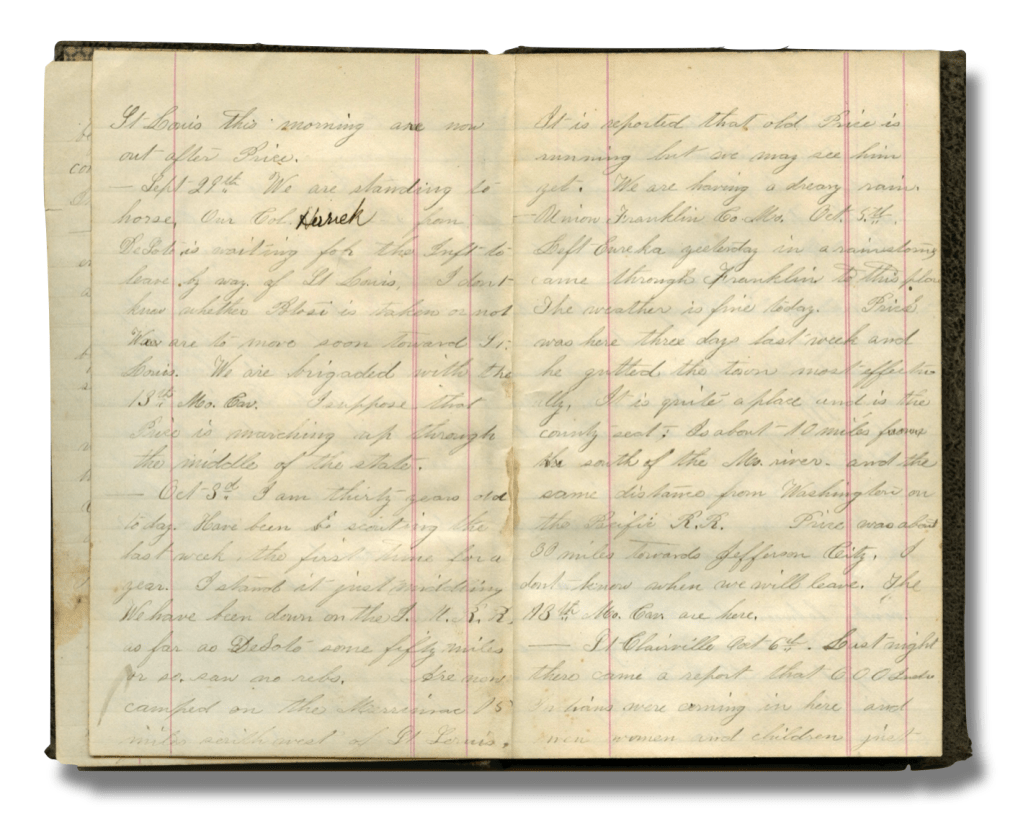 St Louis this morning are now
out after Price.
— Sept 29th We are standing to
horse. Our Col. from
DeSoto is waiting for the Inft to
leave by way of St Louis. I dont
know whether Potosi is taken or not
We are to move soon toward St.
Louis. We are brigaded with the
13th Mo. Cav. I suppose that
Price is marching up through
the middle of the state.
— Oct 3d I am thirty years old
today. Have been scouting the
last week the first time for a
year. I stand it just middling
We have been down on the I. M. R. R.
as far as DeSoto some fifty miles
or so. saw no rebs. Are now
camped on the Merrimac 15
miles south west of St Louis.
It is reported that old Price is
running but we may see him
yet. We are having a dreary rain.
— Union Franklin Co Mo. Oct. 5th.
Left Eureka yesterday in a rainstorm
came through Franklin to this place
The weather is fine today. Price
was here three days last week and
he gutted the town most effectu
ally. It is quite a place and is the
county seat: Is about 10 miles
south of the Mo. river. and the
same distance from Washington on
the Pacific R.R. Price was about
30 miles towards Jefferson City. I
dont know when we will leave. The
13th Mo. Cav. are here.
— St Clairville Oct 6th. Last night
there came a report that 600
Indians were coming in here and
men women and children just